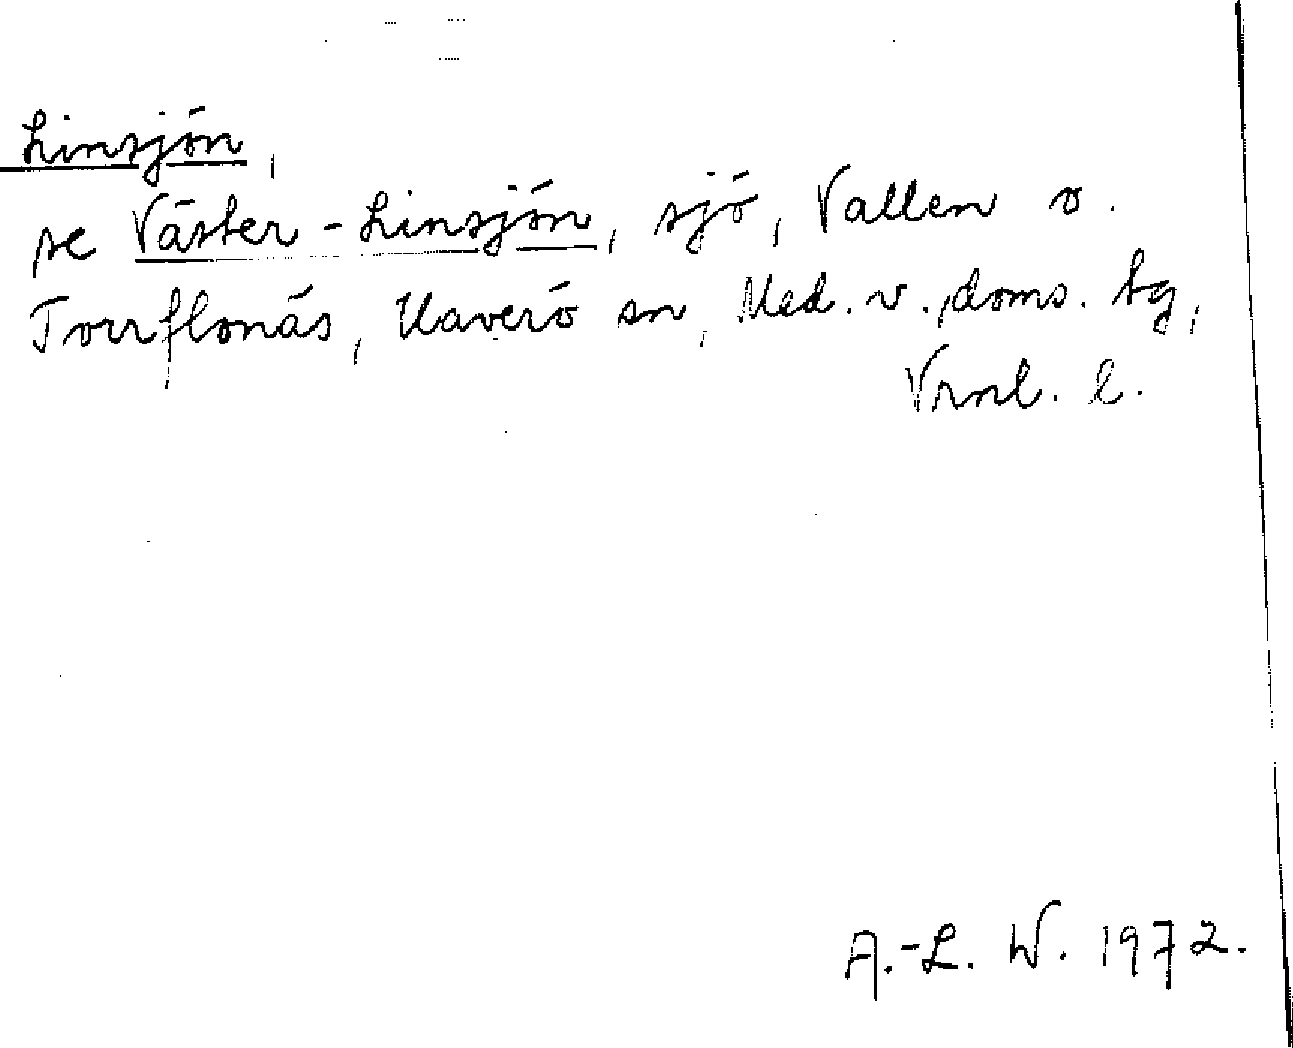 Linsjön,
se Väster-Linsjön, sjö, Vallen o.
Torrflonäs, Haverö sn, Med. v. doms. tg,
Vrnl. l.
A.-L. W. 1972.